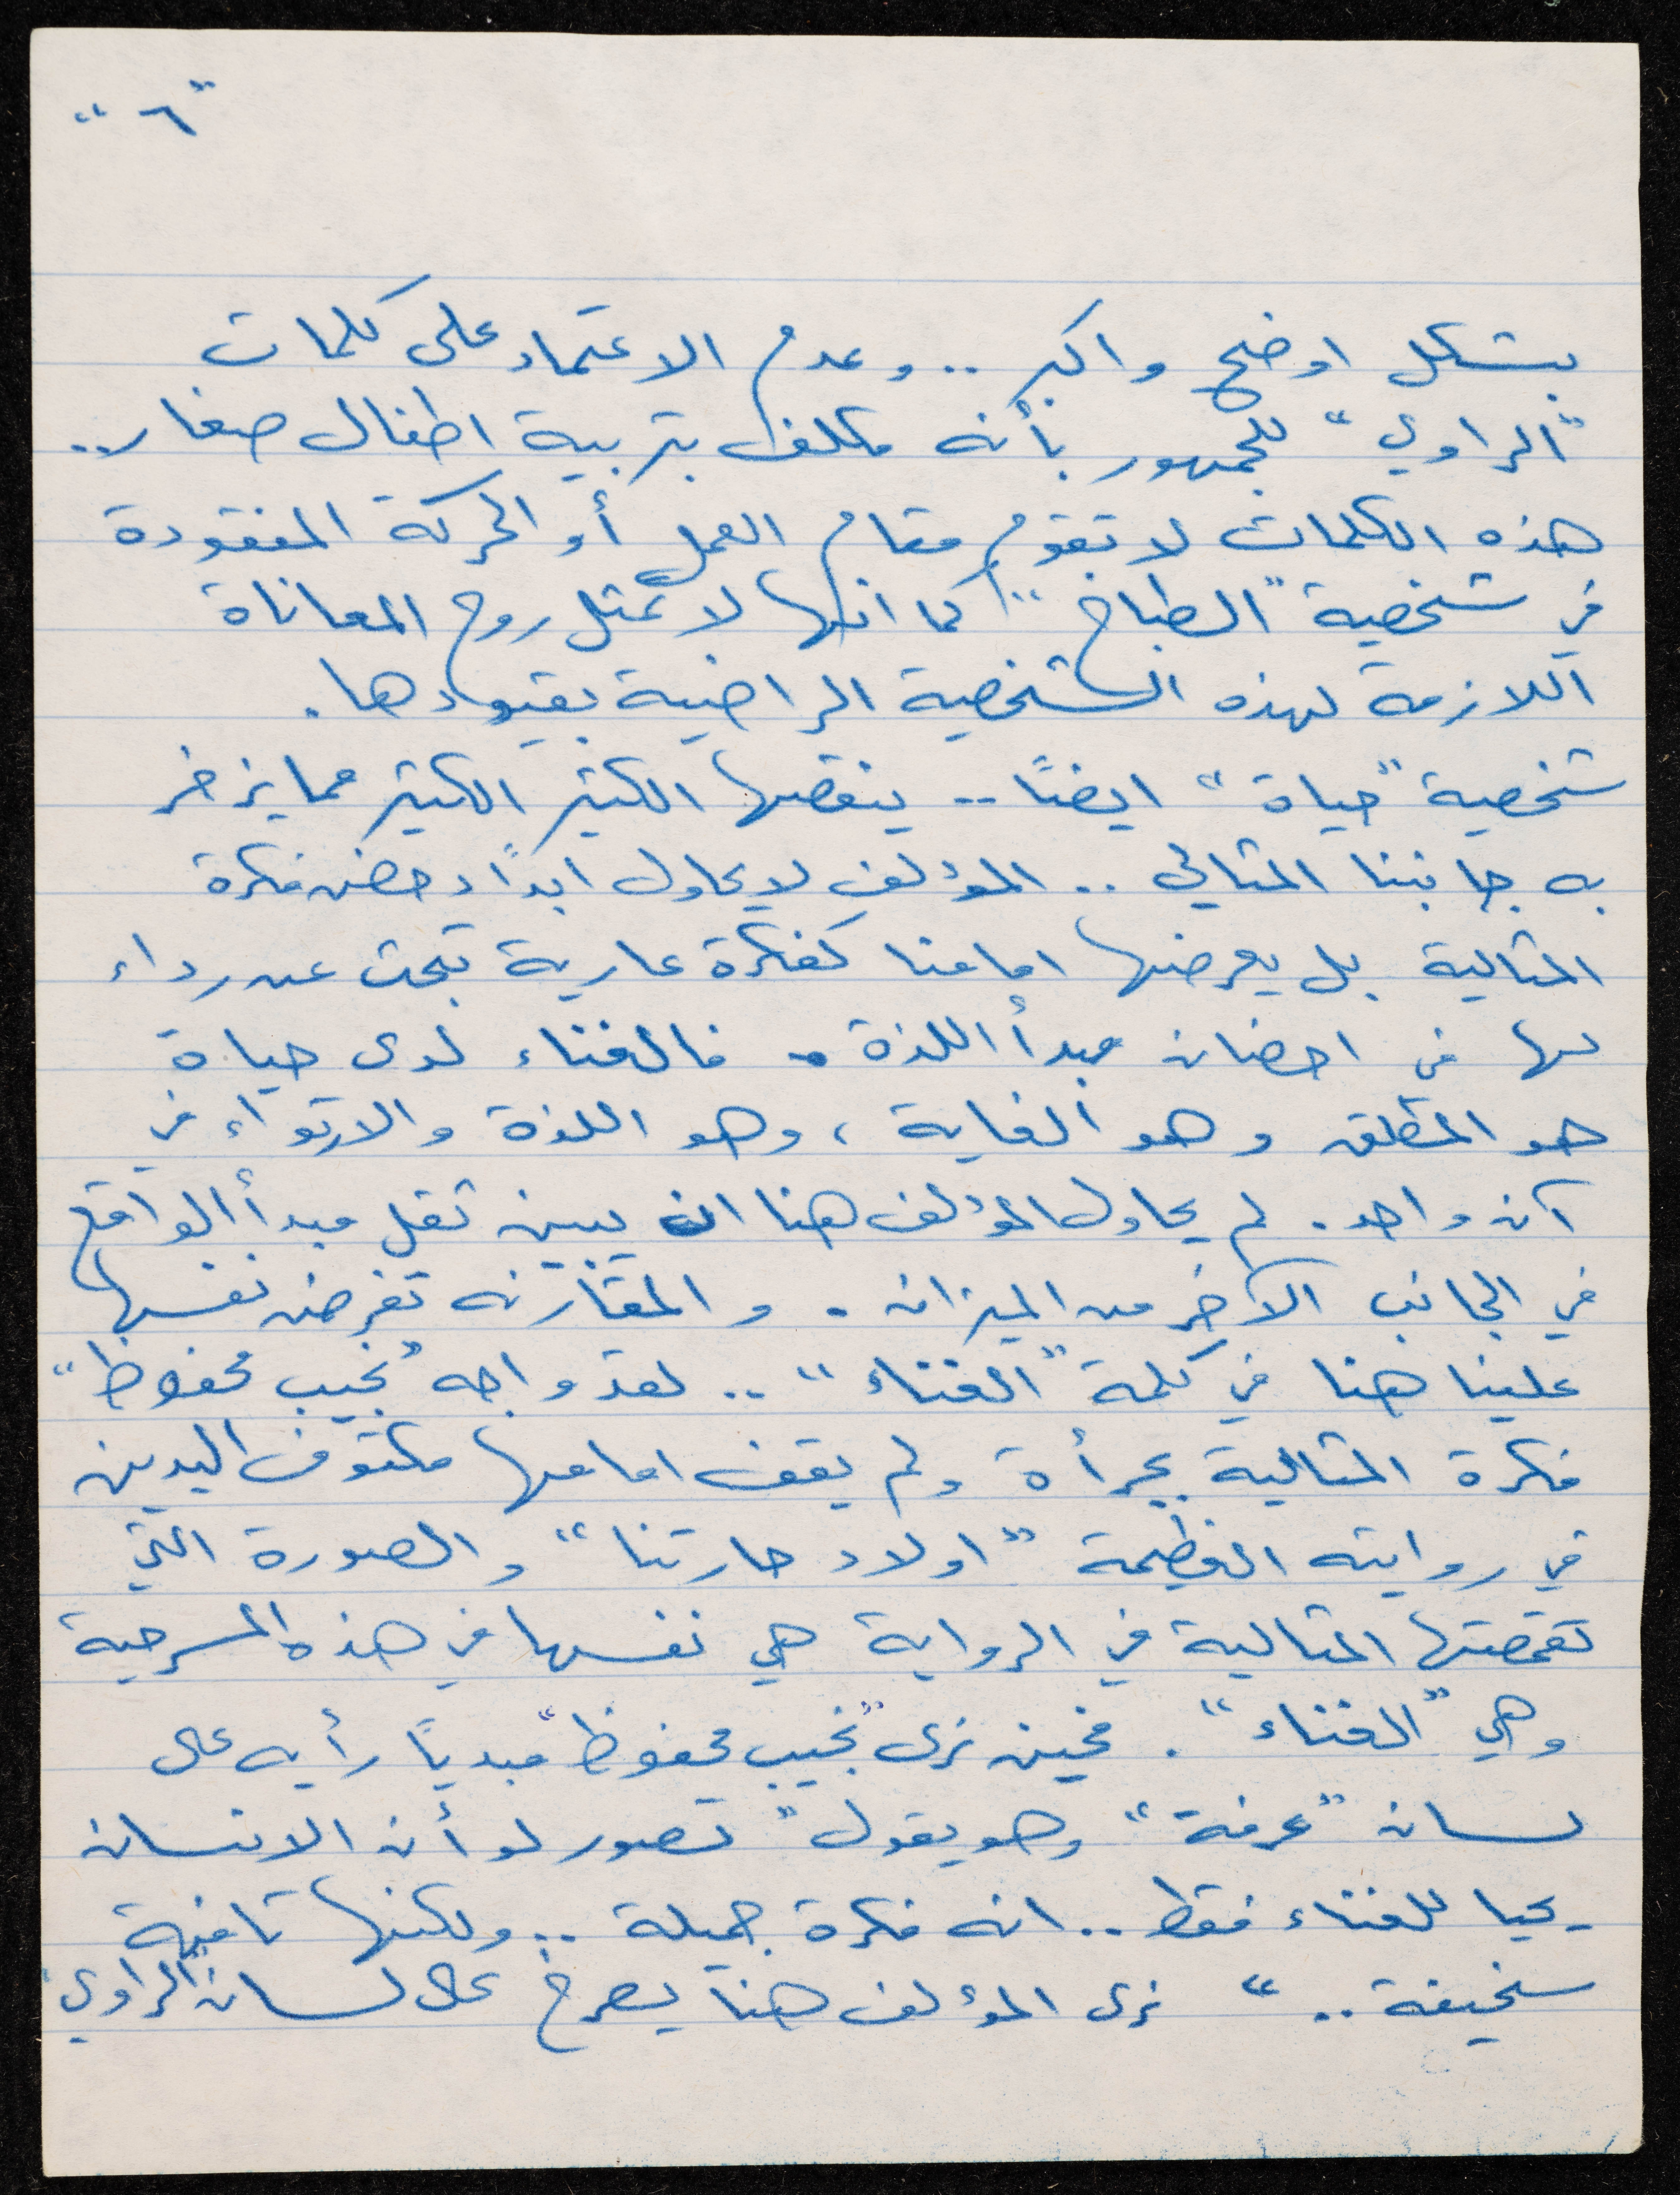 "٦"
بشكل اوضح واكبر .. وعدم الاعتماد على كلمات
"الراوي" للجمهور بأنه مكلف بتربية اطفال صغار ..
هذه الكلمات لا تقوم مقام العمل أو الحركة المفقودة
في شخصية "الطباخ" كما انها لا تمثل روح المعاناة
اللازمة لهذه الشخصية الراضية بقيودها .
شخصية "حياة" ايضًا .. ينقصها الكثير الكثير مما يزخر
به جانبنا المثالي .. المؤلف لا يحاول ابدًا دحض فكرة
المثالية بل يعرضها امامنا كفكرة عارية تبحث عن رداء
لها في احضان مبدأ اللذة . فالغناء لدى حياة
هو المطلق وهو الغاية ، وهو اللذة والارتواء في
آن واحد . لم يحاول المؤلف هنا ان يبين ثقل مبدأ الواقع
في الجانب الآخر من الميزان . والمقارنه تفرض نفسها
علينا هنا في كلمة "الغناء" .. لقد واجه "نجيب محفوظ"
فكرة المثالية بجرأة ولم يقف امامها مكتوف اليدين
في روايته العظيمة "اولاد حارتنا" والصورة التي
تقمصتها المثالية في الرواية هي نفسها في هذه المسرحية
وهي "الغناء" . فحين نرى "نجيب محفوظ" مبديًا رأيه على
لسان "عرفة" وهو يقول "تصور لو أن الانسان
يحيا للغناء فقط .. انه فكرة جميلة .. ولكنها تافهة
سخيفة .. " نرى المؤلف هنا يصرخ على لسان "الراوي"